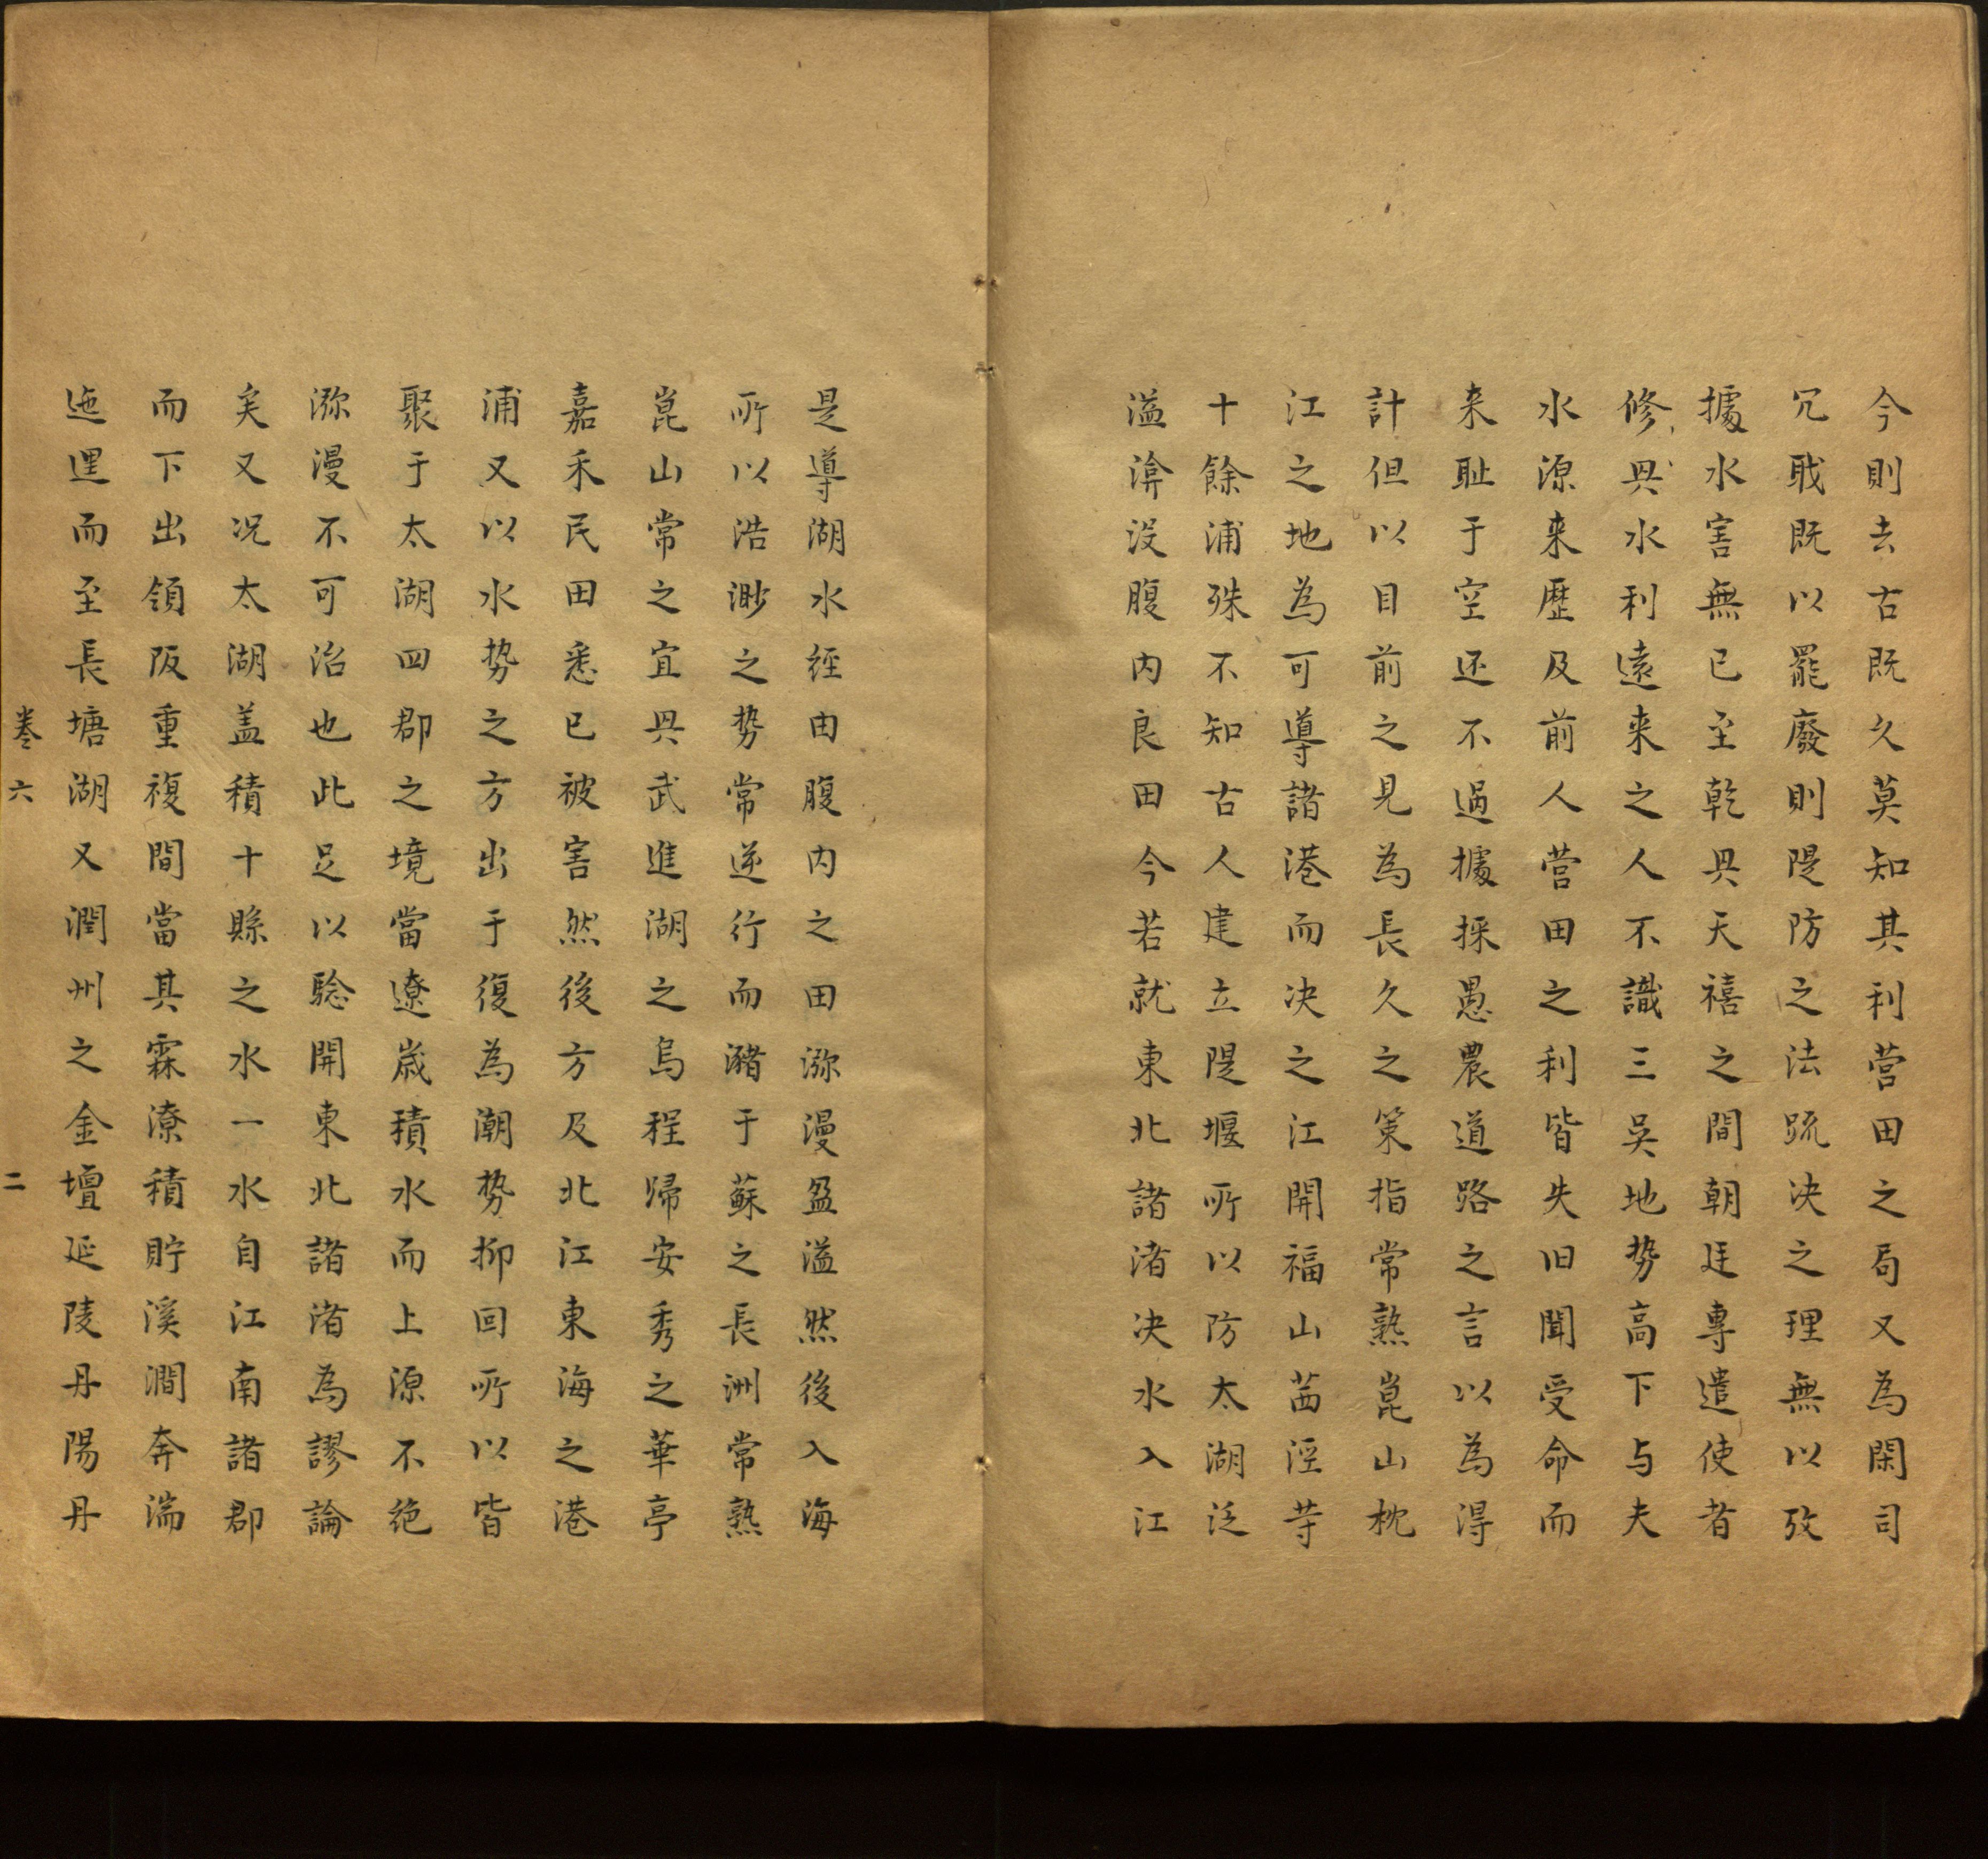 今則去古既久莫知其利营田之局又為閑司
冗戢既以罷廢則隄防之法䟽决之理無以攷
據水害無已至乾㒷天禧之間朝廷專遣使者
修㒷水利遠来之人不識三吳地势高下与夫
水源来歷及前人营田之利皆失旧聞受命而
来耻于空还不過據採愚農道路之言以為得
計但以目前之見為長久之策指常熟崑山枕
江之地為可導諸港而决之江開福山茜涇䓁
十餘浦殊不知古人建立隄堰所以防太湖泛
溢渰没腹内良田今若就東北諸渚决水入江
是導湖水經由腹内之田瀰漫盈溢然後入海
所以浩渺之势常逆行而瀦于蘇之長洲常熟
崑山常之宜㒷武進湖之烏程歸安秀之華亭
嘉禾民田悉已被害然後方及北江東海之港
浦又以水势之方出于復為潮势抑回所以皆
聚于太湖四郡之境當遼歲積水而上源不絶
瀰漫不可治也此足以騐開東北諸渚為謬論
矣又况太湖盖積十縣之水一水自江南諸郡
而下出領阪重複間當其霖潦積貯溪澗奔湍
迤逦而至長塘湖又潤州之金壇延陵丹陽丹
卷六 二